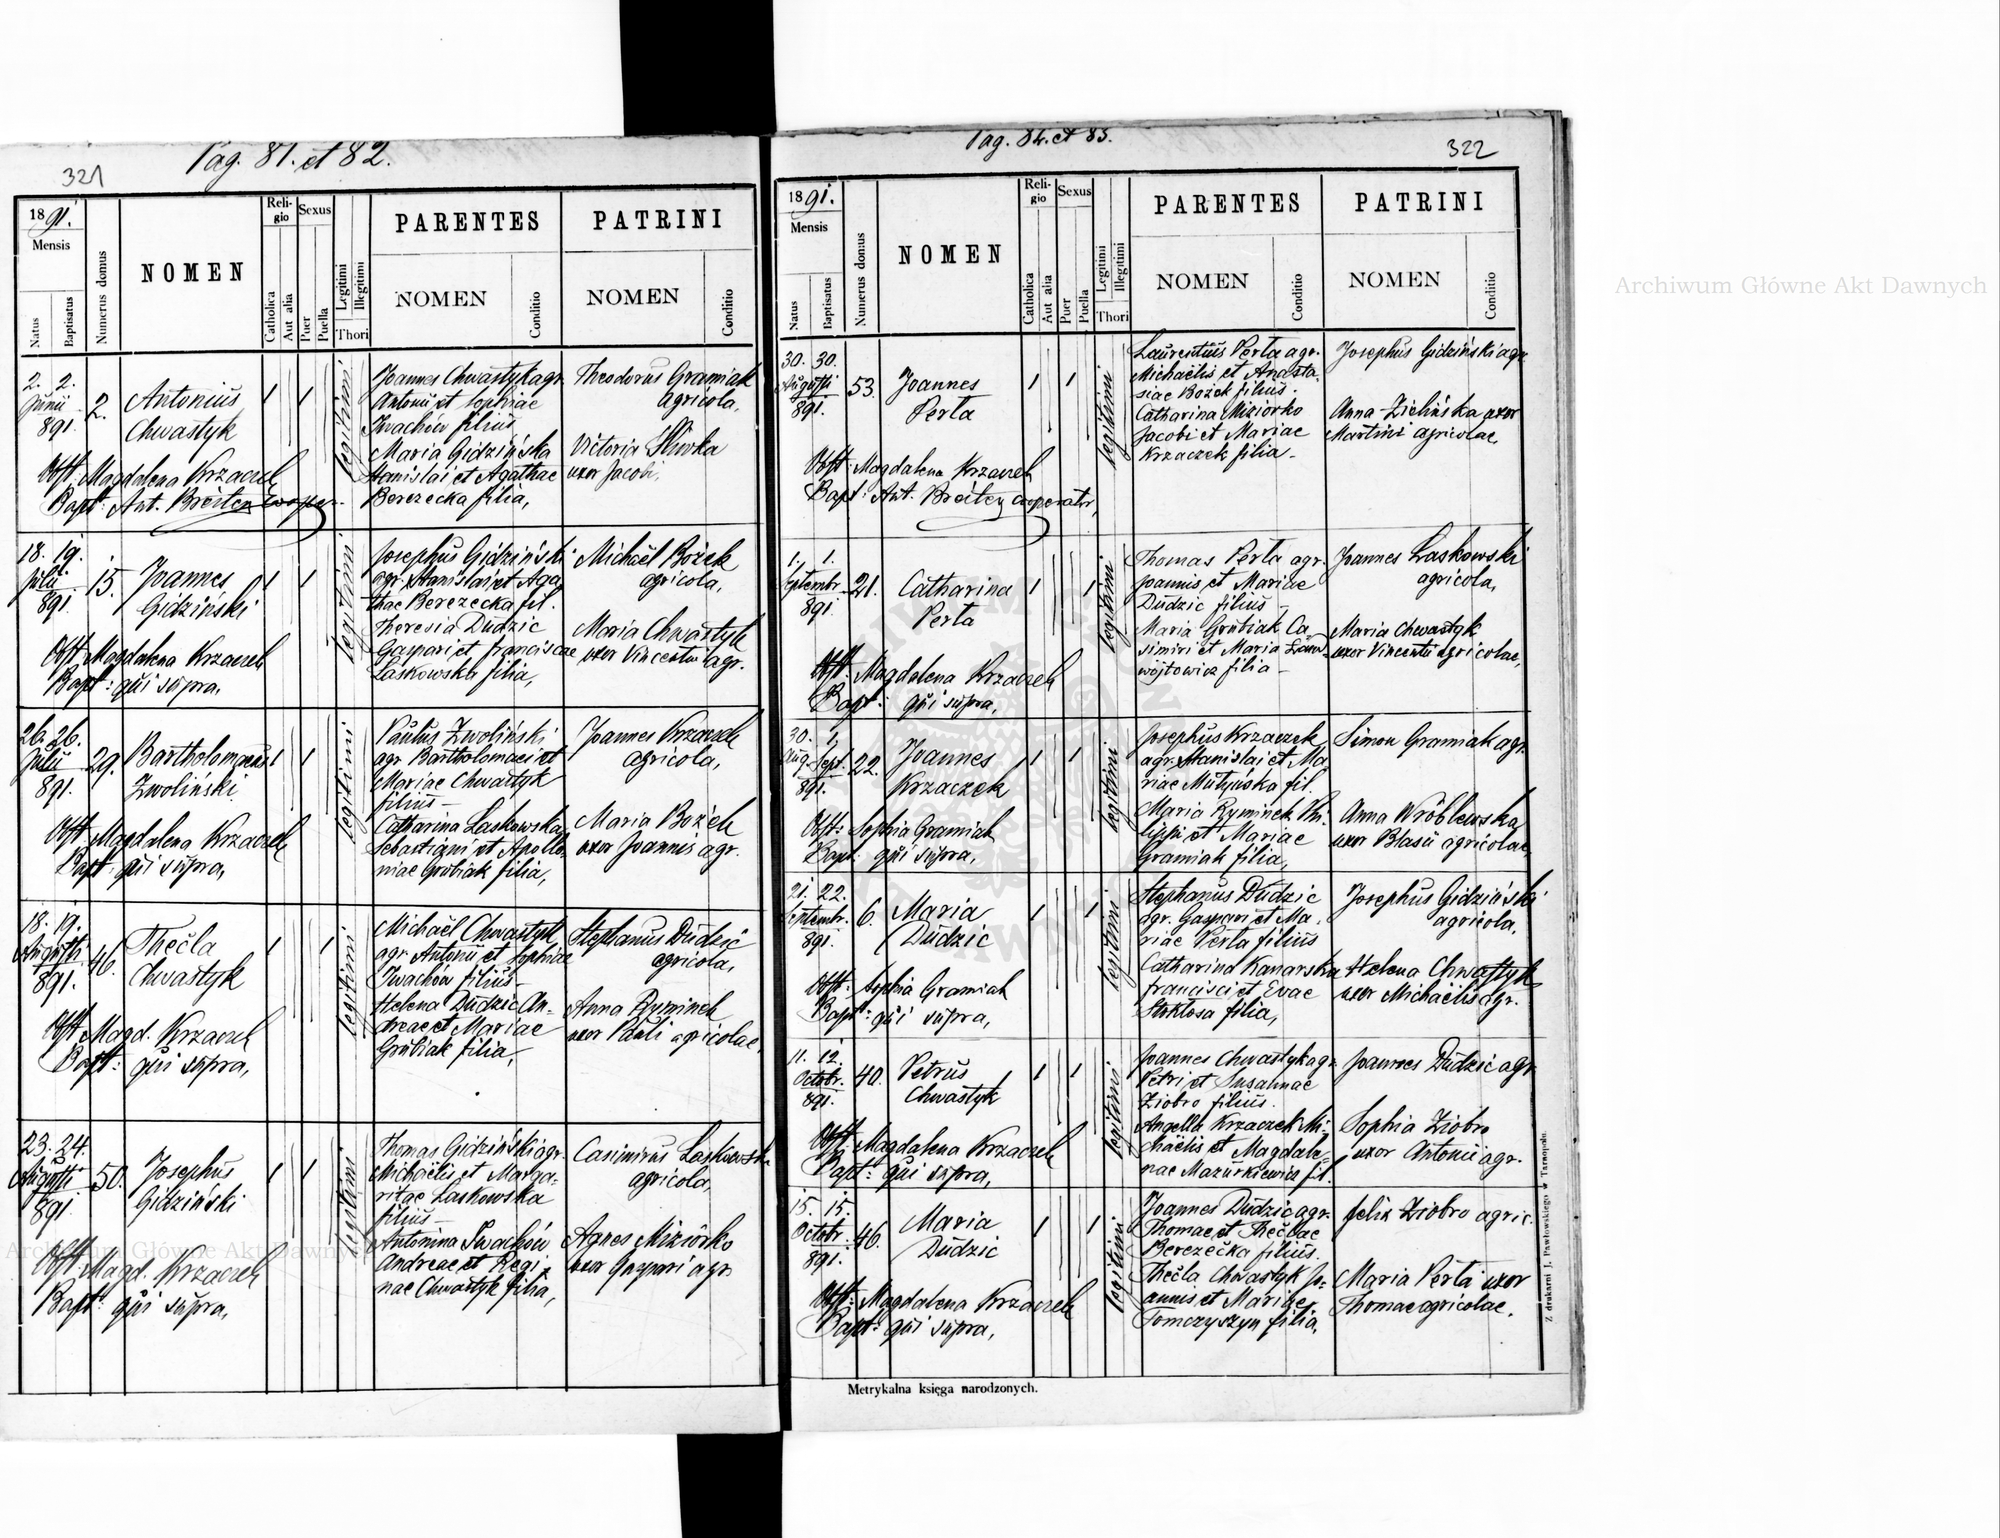 Pag. 81. et 82.
321
1891.
Mensis
Natus
Baptisatus
Numerus domus
NOMEN
Religio
Catholica
Aut alia
Sexus
Puer
Puella
Legitimi
Illegitimi
Thori
PARENTES
NOMEN
Conditio
PATRINI
NOMEN
Conditio
2. 2.
Junii
891.
2.
Antonius
Chwastyk
legitimi
Joannes Chwastyk agr.
Antonii et Sophiae
Iwachów filius
Maria Gidzińska
Stanislai et Agathae
Berezecka filia,
Theodorus Gramiak
agricola,
Victoria Śliwka
uxor Jacobi,
Obst: Magdalena Krzaczek
Bapt: Ant. Breiter cooper.
18. 19.
Julii
891.
15.
Joannes
Gidziński
legitimi
Josephus Gidziński
agr. Stanislai et Aga
thae Berezecka fil.
Theresia Dudzic
Gaspari et Franciscae
Laskowska filia,
Michaël Bożek
agricola,
Maria Chwastyk
uxor Vincentii agr.
Obst: Magdalena Krzaczek
Bapt: qui supra,
26. 26.
Julii
891.
29.
Bartholomaeus
Zwoliński
legitimi
Paulus Zwoliński
agr Bartholomaei et
Mariae Chwastyk
filius
Catharina Laskowska
Sebastiani et Apollo
niae Grubiak filia,
Joannes Krzaczek
agricola,
Maria Bożek
uxor Joannis agr.
Obst: Magdalena Krzaczek
Bapt: qui supra,
18. 19.
Augusti
891.
46.
Thecla
Chwastyk
legitimi
Michaël Chwastyk
agr. Antonii et Sophiae
Iwachów filius
Helena Dudzic An-
dreae et Mariae
Grubiak filia,
Stephanus Dudzic
agricola,
Anna Ryminek
uxor Pauli agricolae.
Obst Magd. Krzaczek
Bapt: qui supra,
23. 24.
Augusti
891.
50.
Josephus
Gidziński
legitimi
Thomas Gidziński agr.
Michaëlis et Marga-
ritae Laskowska
filius
Antonina Iwachów
Andreae et Regi
nae Chwastyk filia,
Casimirus Laskowski
agricola,
Agnes Miziorko
uxor Gaspari agr
Obst: Magd. Krzaczek
Bapt: qui supra,
Pag. 84. et 85.
322
1891.
Mensis
Natus
Baptisatus
Numerus domus
NOMEN
Religio
Catholica
Aut alia
Sexus
Puer
Puella
Legitimi
Illegitimi
Thori
PARENTES
NOMEN
Conditio
PATRINI
NOMEN
Conditio
30. 30.
Augusti
891.
53.
Joannes
Perta
legitimi
Laurentius Perta agr.
Michaëlis et Anasta
siae Bożek filius
Catharina Miziorko
Jacobi et Mariae
Krzaczek filia
Josephus Gidziński agr
Anna Zielińska uxor
Martini agricolae,
Obst: Magdalena Krzaczek
Bapt: Ant. Breiter cooperator,
1. 1.
Septembr.
891.
21.
Catharina
Perta
legitimi
Thomas Perta agr.
Joannis et Mariae
Dudzic filius
Maria Grubiak Ca-
simiri et Maria
wojtowicz filia
Joannes Laskowski
agricola,
Maria Chwastyk
uxor Vincentii agricolae,
Obst: Magdalena Krzaczek
Bapt: qui supra,
30. 1.
Aug. Sept.
891.
22.
Joannes
Krzaczek
legitimi
Josephus Krzaczek
agr. Stanislai et Ma
riae Mutyńska fil.
Maria Ryminek Phi
lippi et Mariae
Gramiak filia,
Simon Gramiak agr.
Anna Wróblewska
uxor Blasii agricolae,
Obst: Sophia Gramiak
Bapt: qui supra,
21. 22.
Septembr.
891.
6.
Maria
Dudzic
legitimi
Stephanus Dudzic
agr. Gaspari et Ma
riae Perta filius
Catharina Kanarska
Francisci et Evae
Stoktosa filia,
Josephus Gidziński
agricola,
Helena Chwastyk
uxor Michaëlis agr.
Obst: Sophia Gramiak
Bapt: qui supra,
11. 12.
Octobr.
891.
40.
Petrus
Chwastyk
legitimi
Joannes Chwastyk agr.
Petri et Susannae
Ziobro filius.
Angella Krzaczek Mi-
chaëlis et Magdale-
nae Mazurkiewicz fil.
Joannes Dudzic agr
Sophia Ziobro
uxor Antonii agr.
Obst: Magdalena Krzaczek
Bapt: qui supra,
15. 15.
Octobr.
891.
46.
Maria
Dudzic
legitimi
Joannes Dudzic agr.
Thomae et Theclae
Berezecka filius.
Thecla Chwastyk Jo-
annis et Mariae
Tomczyszyn filia,
Felix Ziobro agric.
Maria Perta uxor
Thomae agricolae.
Obst: Magdalena Krzaczek
Bapt: qui supra,
Metrykalna księga narodzonych.
Z drukarni J. Pawłowskiego w Tarnopolu.
Archiwum Główne Akt Dawnych
Archiwum Główne Akt Dawnych